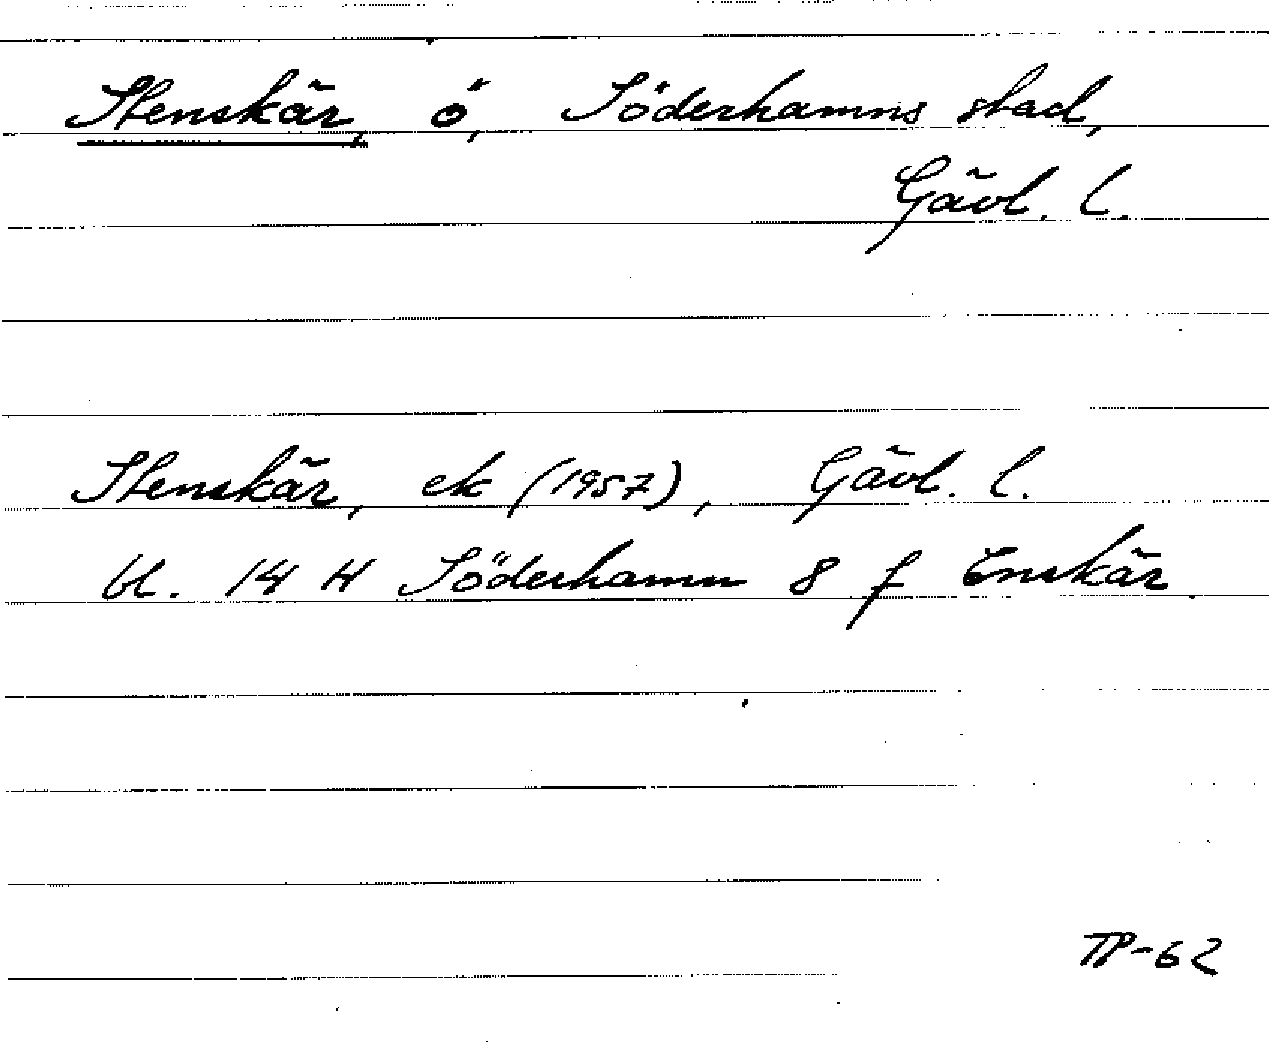 Stenskär, ö, Söderhamns stad,
Gävl. l.
Stenskär, ek (1957), Gävl. l.
bl. 14 H Söderhamn 8 f Enskär
TP-62